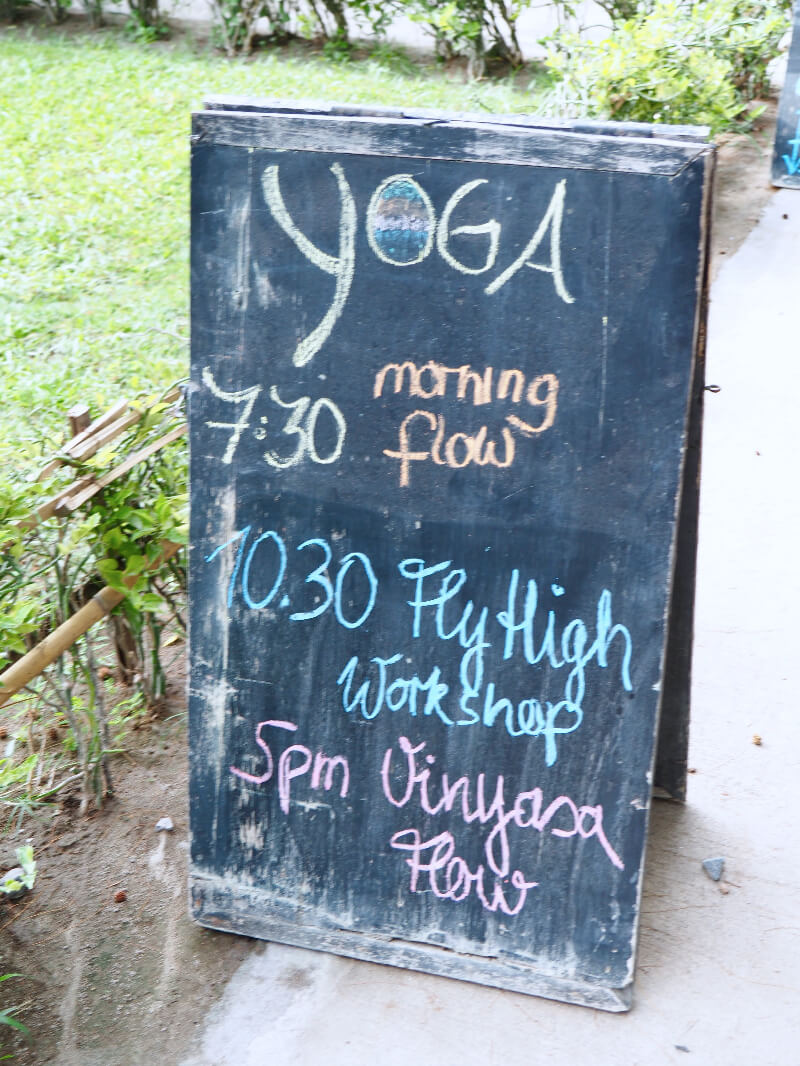 YOGA
7:30 morning
flow
10.30 Fly High
Workshop
5pm Vinyasa
Flow